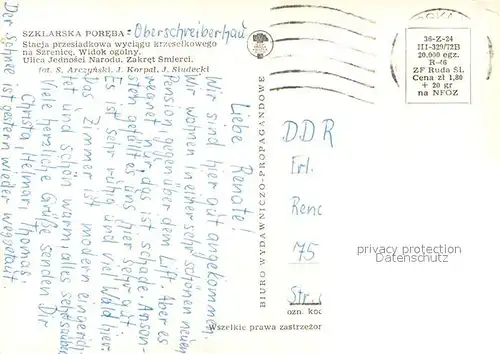 SZKLARSKA PORĘBA - Oberschreiberhau
Stacja przesiadkowa wyciągu krzesełkowego
na Szrenicę. Widok ogólny.
Ulica Jedności Narodu. Zakręt Śmierci.
fot. S. Arczyński, J. Korpal, J. Siudecki
36-Z-24
III-329/72B
20.000 egz.
R-46
ZF Ruda Śl.
Cena zł 1,80
+ 20 gr
na NFOZ
BIURO WYDAWNICZO-PROPAGANDOWE
Liebe Renate!
Wir sind hier gut angekommen.
Wir wohnen in einer sehr schönen neuen
Pension, gegenüber dem Lift. Aber es
regnet nur, das ist schade. Anson-
sten gefällt es uns hier sehr gut.
Es ist sehr ruhig und viel Wald hier.
Das Zimmer ist modern eingerich-
tet und schön warm, alles sehr sauber.
Viele herzliche Grüße senden Dir
Christa, Helmar, Thomas.
Der Schnee ist gestern wieder weggetaut.
DDR
Frl.
Rena
75
Str.
ozn. kod
Wszelkie prawa zastrzeżon
privacy protection
Datenschutz